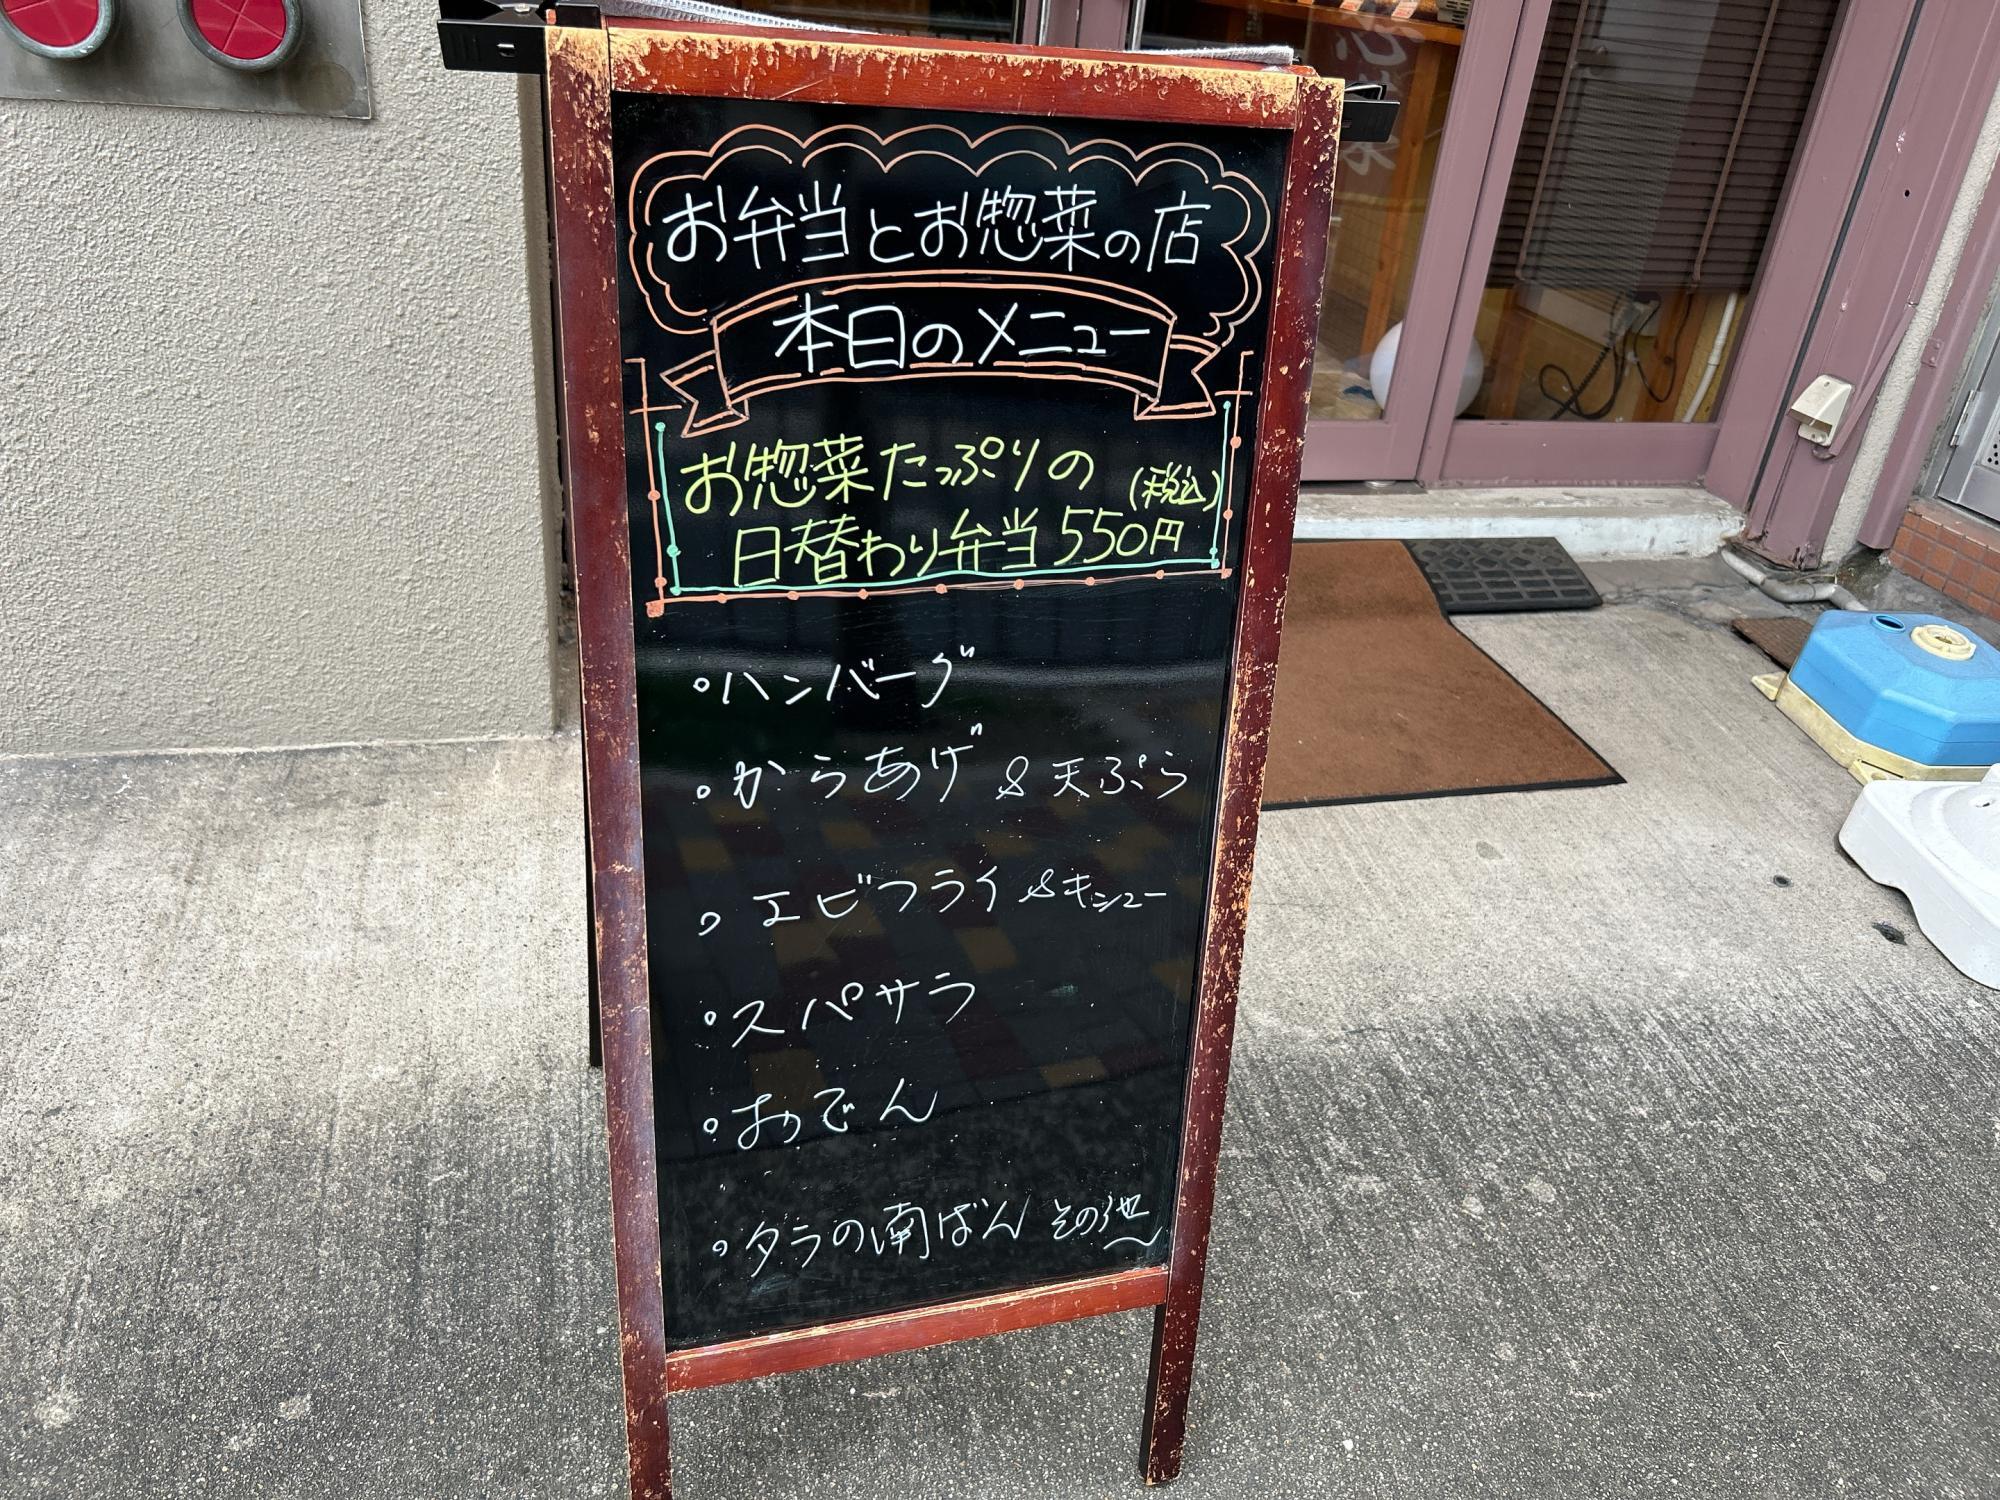 お弁当とお惣菜の店
本日のメニュー
お惣菜たっぷりの (税込)
日替わり弁当 550円
・ハンバーグ
・からあげ & 天ぷら
・エビフライ &キシュー
・スパサラ
・おでん
・タラの南ばん その他